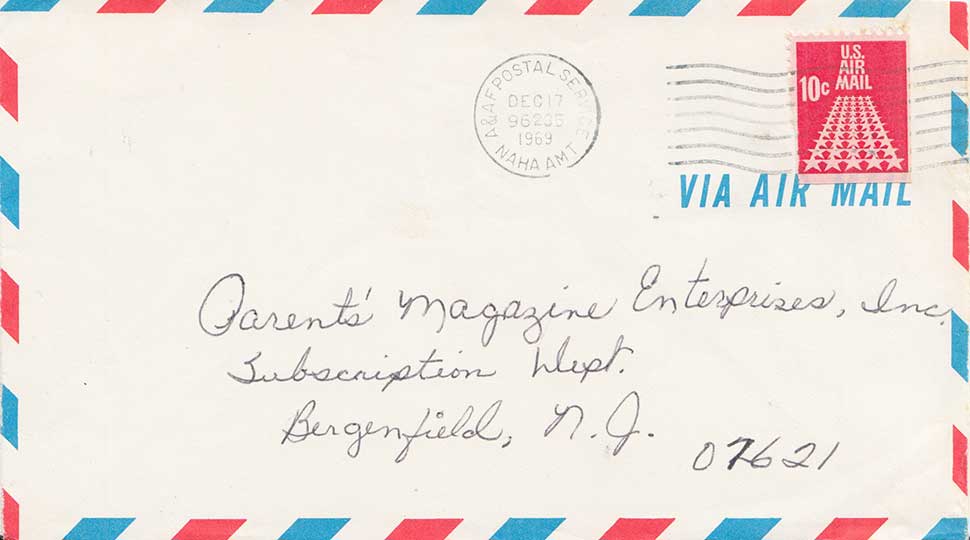 A&AF POSTAL SERVICE
DEC 17
96235
1969
NAHA AMT
U.S.
AIR
MAIL
10c
VIA AIR MAIL
Parents' Magazine Enterprises, Inc.
Subscription Dept.
Bergenfield, N.J.
07621